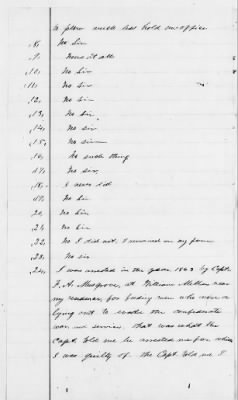 to place such has hold no office
8, No Sir
9, None at all
10, No Sir
11, No sir
12, No sir
13, No Sir
14, No sir
15, No sir
16, No such thing
17, No sir
18, I never did
19, No Sir
20, No Sir
21, No Sir
22, No I did not, I remained on my farm
23, No sir
24, I was arrested in the year 1863 by Capt.
F. A. Musgrove, at William Millers near
my residence, for feeding men who were
lying out to evade the confederate
war service. that was what the
Capt. told me he arrested me for which
I was guilty of the Capt. told me I